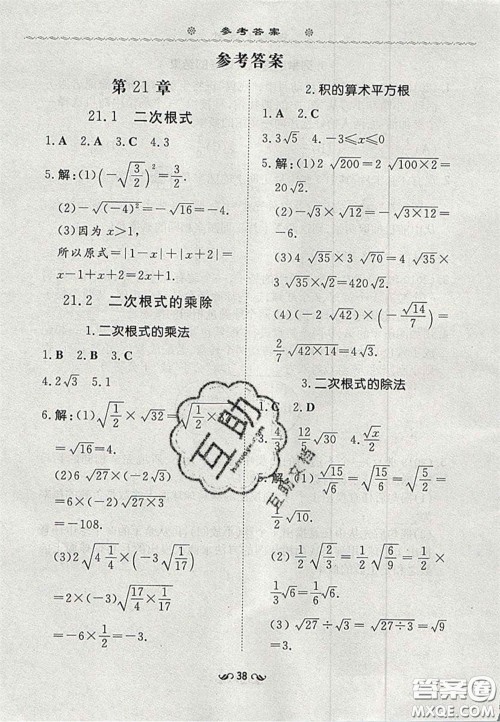 参考答案
参考答案
第21章
21.1 二次根式
1.A 2.A 3.C 4.3
5.解:(1)(-√(3/2))²=3/2.
(2)-√((-4)²)=-√16=-4.
(3)因为 x>1,
所以原式=|1-x|+|x+2|=
x-1+x+2=2x+1.
21.2 二次根式的乘除
1.二次根式的乘法
1.B 2.B 3.C
4.2√3 5.1
6.解:(1)√(1/2)×√32=√(1/2×32)
=√16=4.
(2)6√27×(-2√3)
=6×(-2)√(27×3)
=-108.
(3)2√(4 1/4)×(-√(1/17))
=2×(-√(17/4×1/17))
=-1.
2.积的算术平方根
1.D 2.C
3.3√5 4.-3≤x≤0
5.解:(1)2√200=2√(100×2)=
20√2.
(2)-√3×√12=-√(3×12)=
-6.
(3)4√35×3√70=4√35×
3√(35×2)=420√2.
(4)(-2/7√42)×(-√14/√7)=
2/7√(42×14)/√7=4/7√21.
3.二次根式的除法
1.C 2.D
3.4/3 12/5√30 4.√x/2
5.解:(1)√15/√6=√(15/6)=√(5/2)=
1/2√10.
(2)1/2√(2/3)=1/2√(6/9)=1/2×
1/3√6=1/6√6.
(3)√27÷√3=√(27÷3)=√9
=3.
38
互助
互助文档
答案圈
MXQE.COM